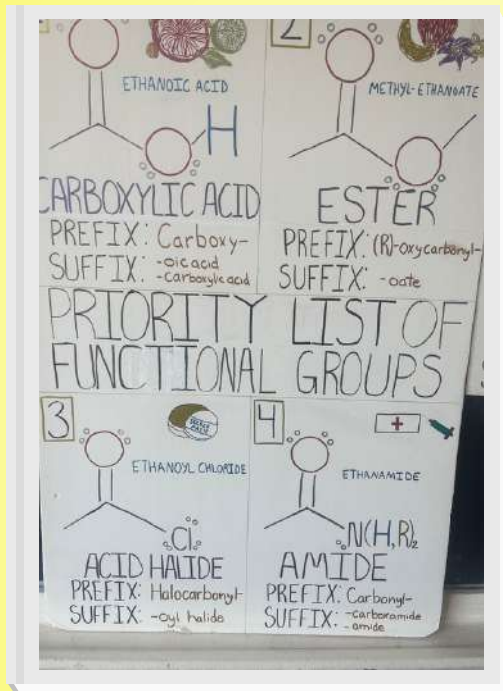 2
ETHANOIC ACID
METHYL-ETHANOATE
H
CARBOXYLIC ACID
PREFIX: Carboxy-
SUFFIX: -oic acid
-carboxylic acid
ESTER
PREFIX: (R)-oxycarbonyl-
SUFFIX: -oate
PRIORITY LIST OF
FUNCTIONAL GROUPS
3
ETHANOYL CHLORIDE
Cl
ACID HALIDE
PREFIX: Halocarbonyl-
SUFFIX: -oyl halide
4
ETHANAMIDE
N(H,R)2
AMIDE
PREFIX: Carbonyl-
SUFFIX: -carboxamide
-amide